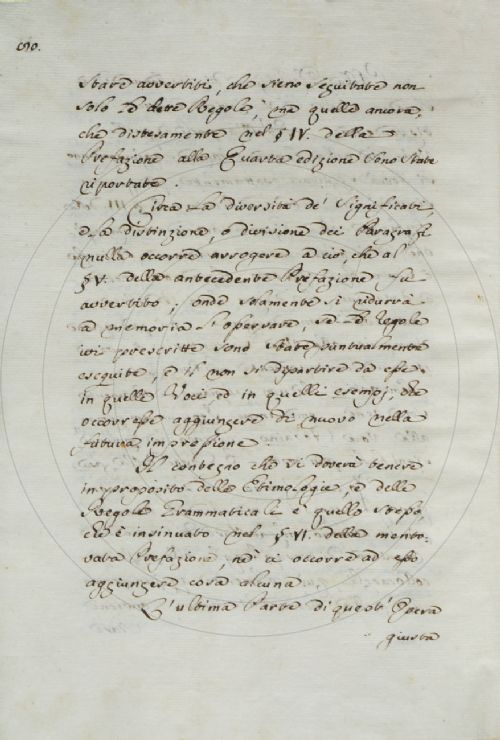 90.
state avvertiti, che sieno seguitate non
solo le dette Regole, ma quelle ancora,
che distesamente nel § IV. della
Prefazione alla Quarta edizione sono state
riportate.
Circa la diversità de' Significati
e la distinzione, o divisione dei Paragrafi
nulla occorre arrogere a ciò, che al
§ V. della antecedente Prefazione fu
avvertito; onde solamente si ridurrà
a memoria l'osservare, se le regole
ivi prescritte sono state puntualmente
eseguite, e il non si dipartire da esse
in quelle Voci ed in quelli esempj, che
occorresse aggiungere di nuovo nella
futura impressione.
Il contegno che si doverà tenere
in proposito delle Etimologie, e delle
Regole Grammaticali è quello stesso
che è insinuato nel § VI. della mento-
vata Prefazione, nè ci occorre ad esso
aggiungere cosa alcuna.
L'ultima Parte di quest' Opera
giusta